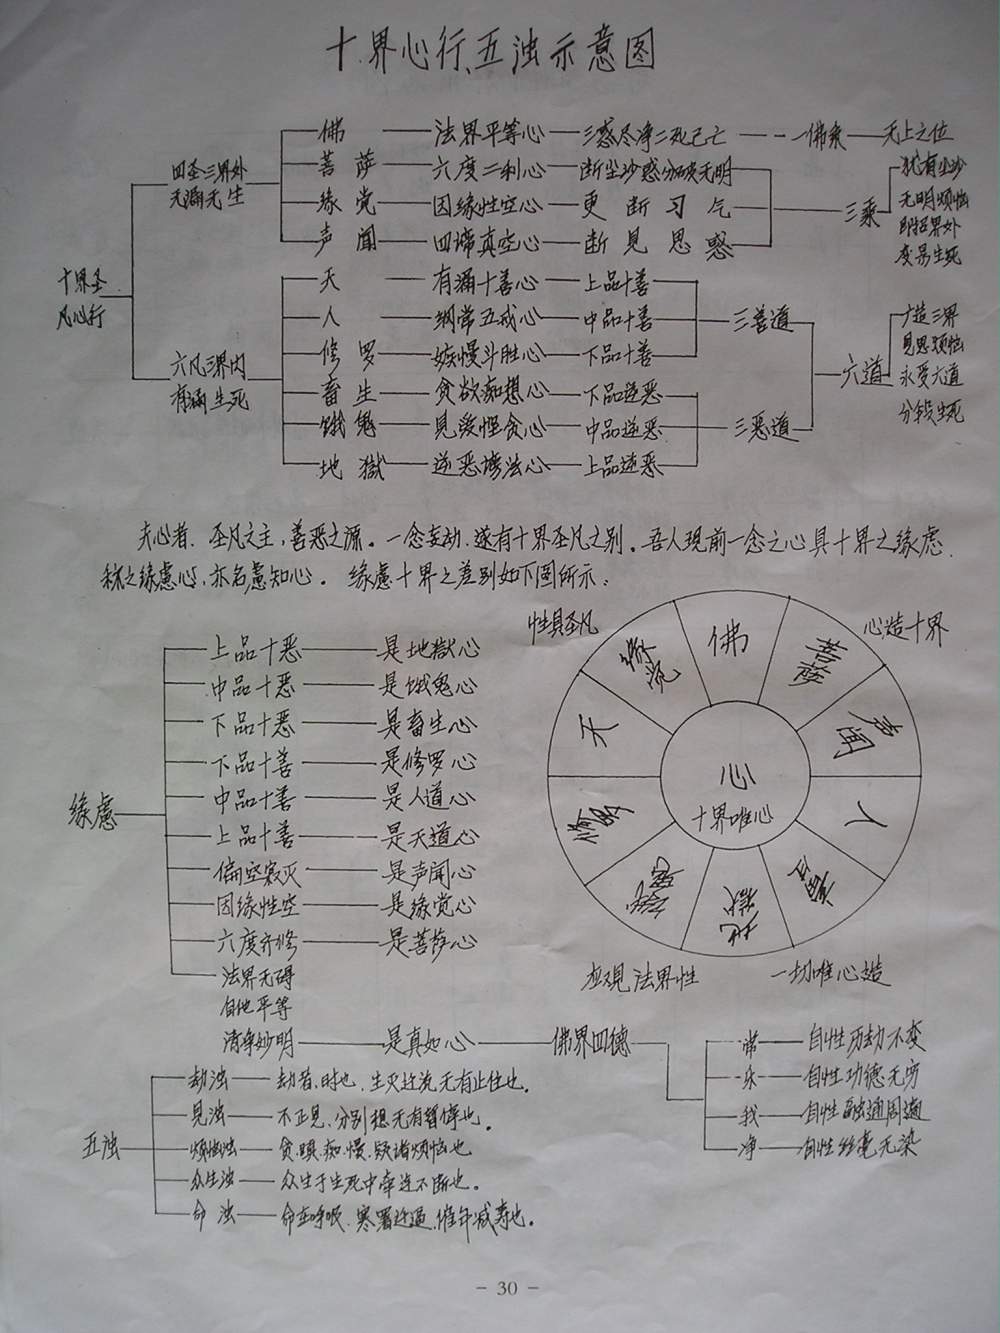 十界心行、五浊示意图
佛 法界平等心 三惑尽净二死已亡 一佛乘 无上之位
四圣三界外 菩萨 六度二利心 断尘沙惑分破无明 犹有尘沙
无漏无生 缘觉 因缘性空心 更断习气 三乘 无明烦恼
声闻 四谛真空心 断見思惑 即招界外
变易生死
十界圣
凡心行
天 有漏十善心 上品十善
人 纲常五戒心 中品十善 三善道 广造三界
修罗 嫉慢斗胜心 下品十善 見思烦恼
六凡三界内 畜生 贪欲痴想心 下品逆恶 六道 永受六道
有漏生死 饿鬼 見爱悭贪心 中品逆恶 三恶道 分段生死
地獄 逆恶谤法心 上品逆恶
夫心者、圣凡之主,善恶之源。一念妄动、遂有十界圣凡之别。吾人現前一念之心具十界之缘虑、
称之缘慮心,亦名慮知心。缘慮十界之差别如下图所示:
性具圣凡 心造十界
上品十恶 是地獄心
中品十恶 是饿鬼心
下品十恶 是畜生心
下品十善 是修罗心
缘慮 中品十善 是人道心
上品十善 是天道心
偏空寂灭 是声闻心
因缘性空 是缘觉心
六度齐修 是菩萨心
法界无碍
自他平等
清净妙明 是真如心 佛界四德
佛
菩萨
声闻
人
畜生
地獄
饿鬼
修罗
天
缘觉
心
十界唯心
应观法界性 一切唯心造
常 自性历劫不变
乐 自性功德无穷
我 自性融通周遍
净 自性丝毫无染
劫浊 劫者,时也,生灭迁流无有止住也。
見浊 不正見、分别想无有暂停也。
五浊 烦恼浊 贪、瞋、痴、慢、疑诸烦恼也
众生浊 众生于生死中牵连不断也。
命浊 命在呼吸、寒署迁逼,催年减寿也。
- 30 -